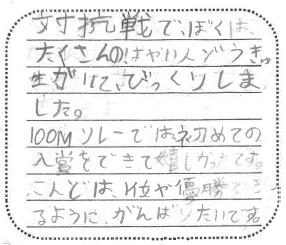 対抗戦で、ぼくは、
たくさんのはやい人どうきゅ
生がいて、びっくりしま
した。
100Mリレーでは、初めての
入賞をできて嬉しかったです。
こんどは、1位や優勝でき
るように、がんばりたいです。